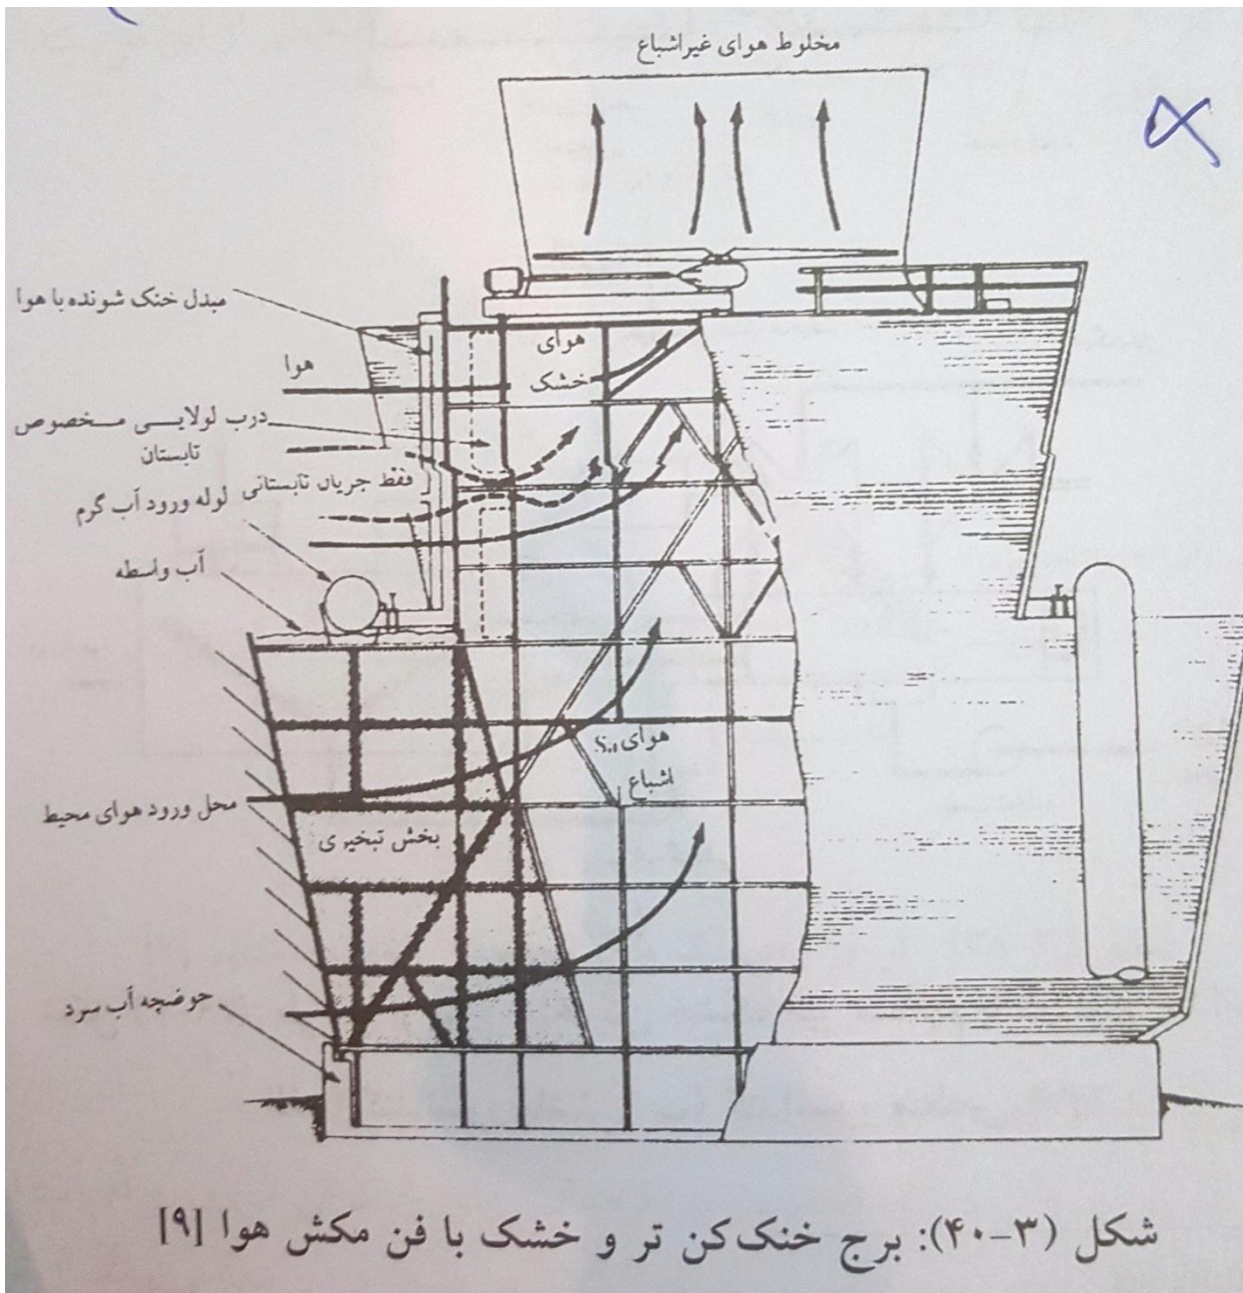 مخلوط هوای غیراشباع
مبدل خنک شونده با هوا
هوا
هوای
خشک
درب لولایی مخصوص
تابستان
فقط جریان تابستانی
لوله ورود آب گرم
آب واسطه
هوای
اشباع
محل ورود هوای محیط
بخش تبخیری
حوضچه آب سرد
شکل (۳-۴۰): برج خنک‌کن تر و خشک با فن مکش هوا [۹]